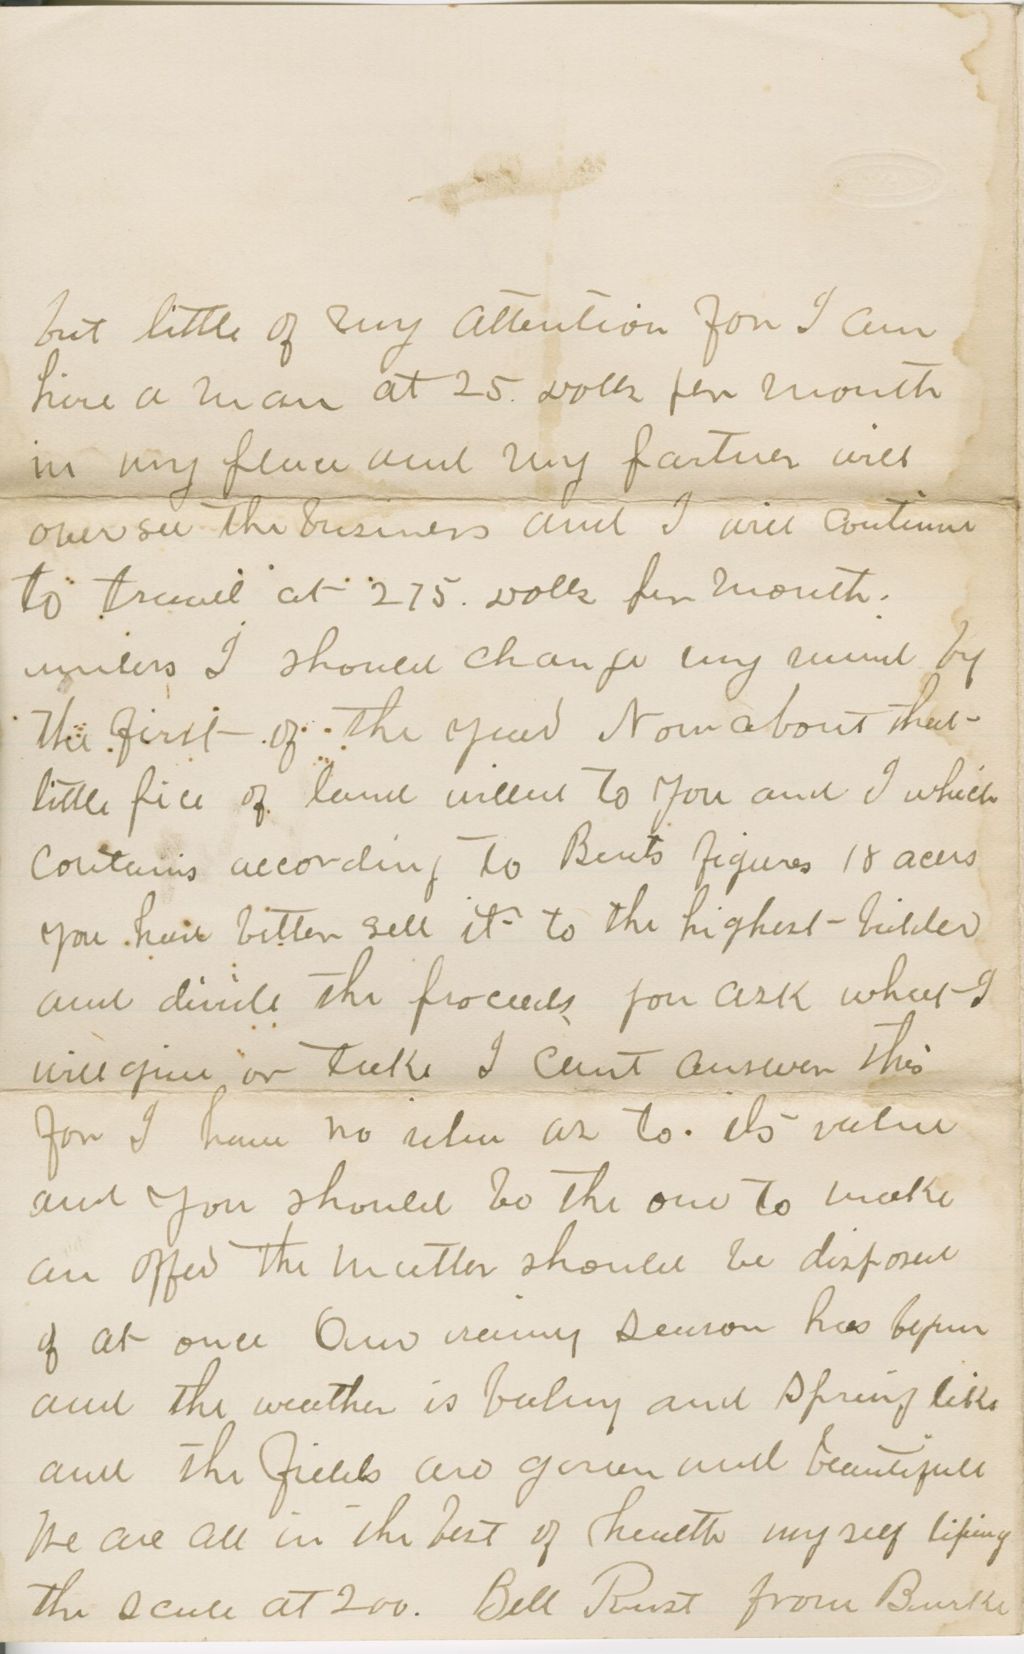 but little of my attention for I can
hire a man at 25. dolls per month
in my place and my partner will
over see the business and I will continue
to travel at 275. dolls per month.
unless I should change my mind by
the first of the year Now about that
little piece of land willed to you and I which
contains according to Bents figures 18 acers
you have better sell it to the highest bidder
and divide the proceeds you ask what I
will give or take I cant answer this
for I have no idea as to its value
and you should be the one to make
an offer the matter should be disposed
of at once Our rainy season has begun
and the weather is balmy and Spring like
and the fields are green and beautifull
We are all in the best of health my self tiping
the scale at 200. Bell Rust from Burke